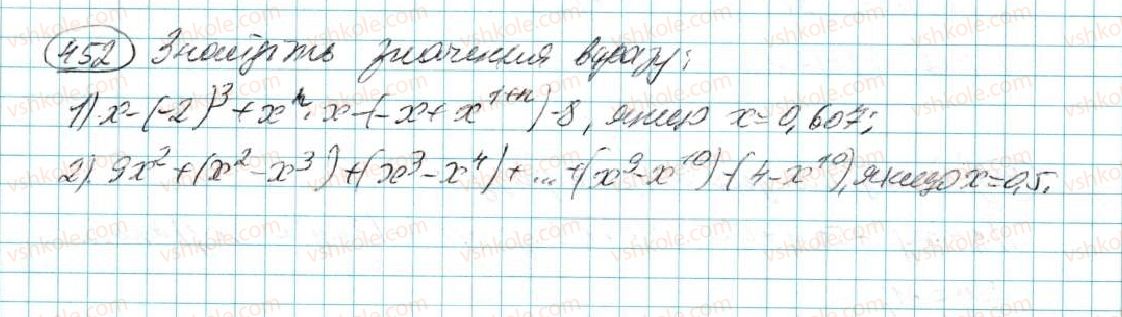 452 Знайдіть значення виразу:
1) x-(-2)³+xⁿ·x-(-x+x¹⁺ⁿ)-8, якщо x=0,607;
2). 9x²+(x²-x³)+(x³-x⁴)+...+(x⁹-x¹⁰)-(4-x¹⁰), якщо x=0,5.